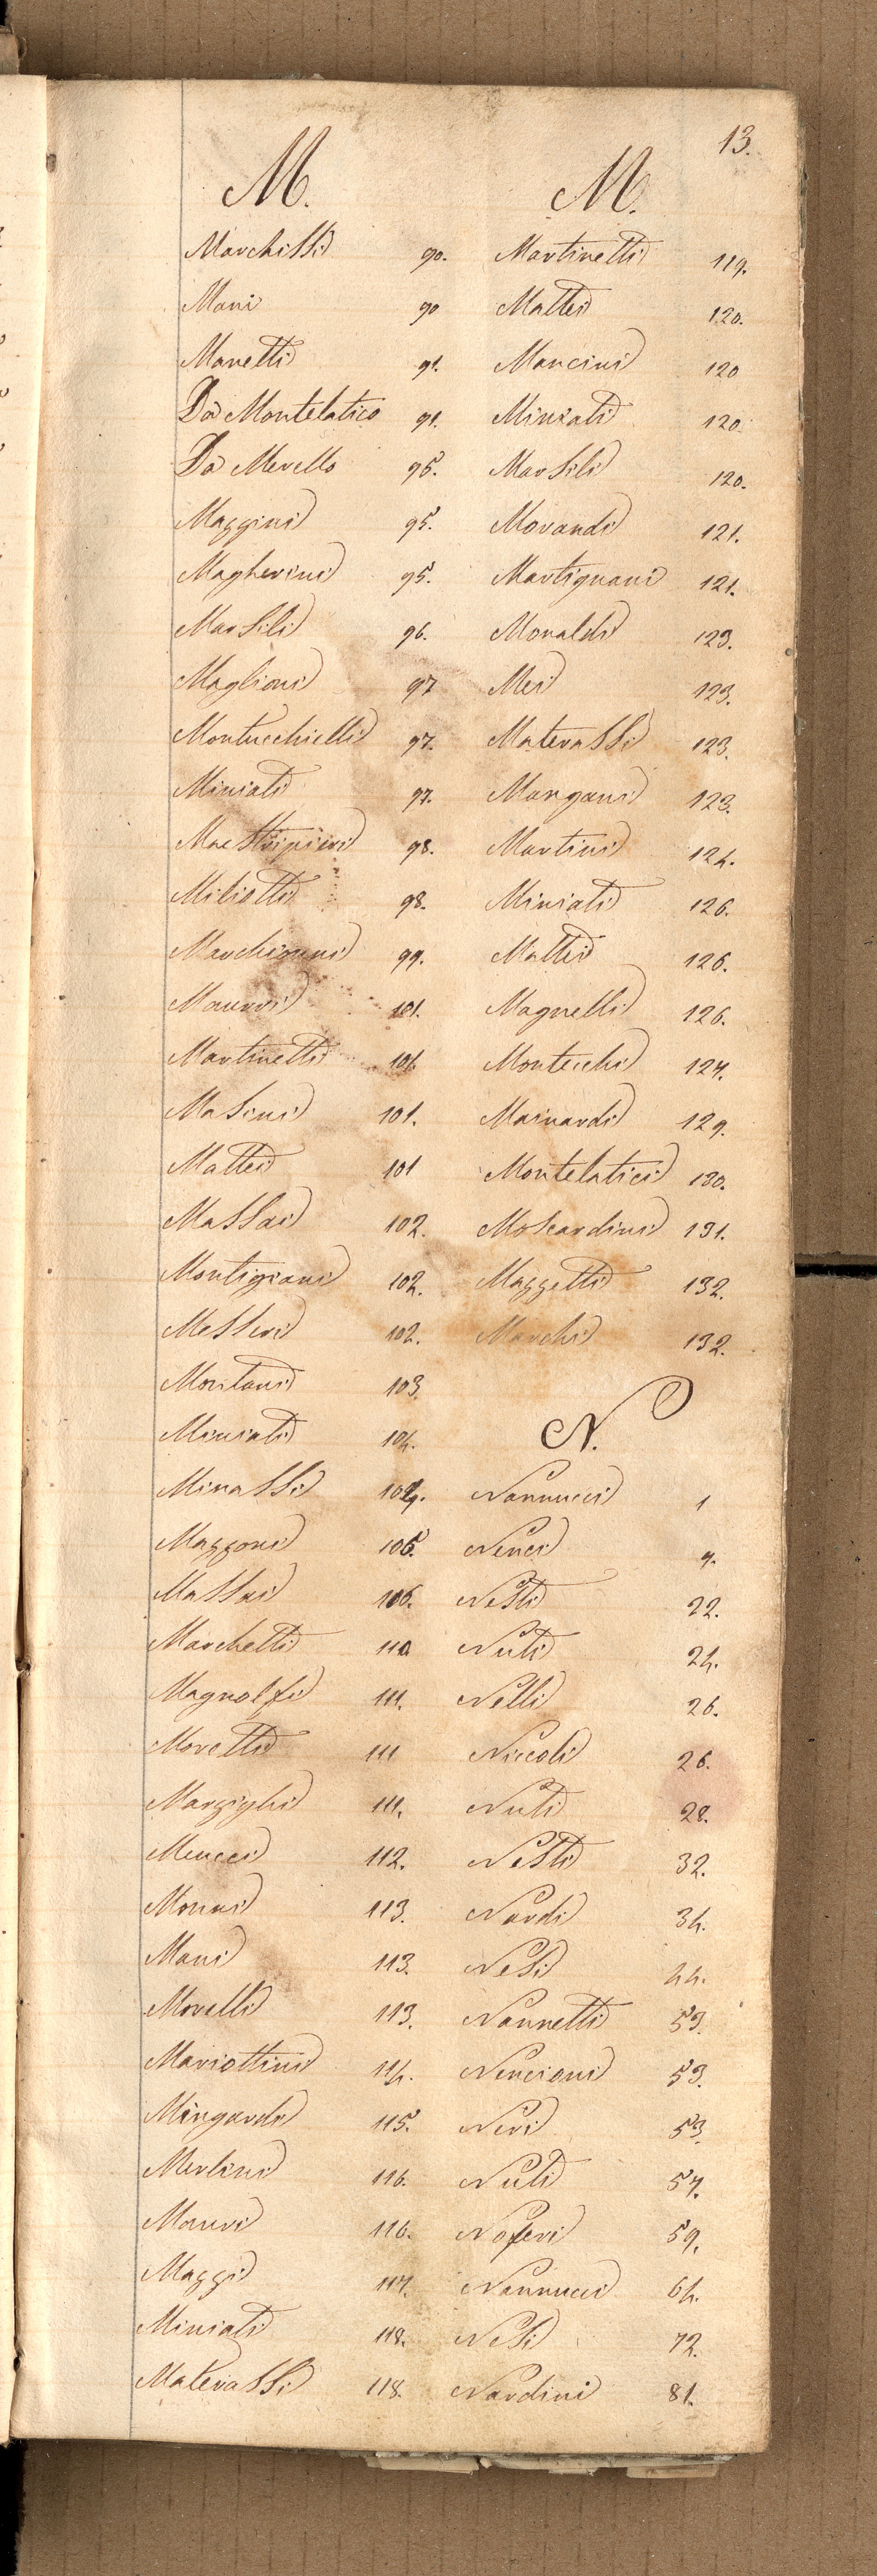 13.
M.
Marchissi 90.
Mani 90
Manetti 91.
Da Montelatico 91.
Da Merello 95.
Maggini 95.
Magherini 95.
Marsili 96.
Maglioni 97
Montucchielli 97.
Miniati 97.
Maestripieri 98.
Miliotti 98.
Marchionni 99.
Maurri 101.
Martinetti 101.
Masini 101.
Mattei 101
Massai 102.
Montigiani 102.
Messeri 102.
Montani 103.
Miniati 104.
Minassi 104.
Mazzoni 105.
Massai 106.
Marchetti 110
Magnolfi 111.
Moretti 111
Marzighi 111.
Meucci 112.
Monni 113.
Mani 113.
Morelli 113.
Mariottini 114.
Mingardi 115.
Merlini 116.
Mauri 116.
Maggi 117.
Miniati 118.
Materassi 118.
M.
Martinetti 119.
Mattei 120.
Mancini 120
Miniati 120.
Marsili 120.
Morandi 121.
Martignani 121.
Monaldi 123.
Mei 123.
Materassi 123.
Mangani 123.
Martini 124.
Miniati 126.
Mattei 126.
Magnelli 126.
Montecchi 127.
Mainardi 129.
Montelatici 130.
Moscardini 131.
Mazzetti 132.
Marchi 132.
N.
Nannucci 1
Nenci 7.
Nesti 22.
Nuti 24.
Nelli 26.
Niccoli 26.
Nuti 28.
Nesti 32.
Nardi 34.
Nesi 44.
Nannetti 53.
Nencioni 53.
Neri 53.
Nuti 57.
Noferi 59.
Nannucci 64.
Nesi 72.
Nardini 81.